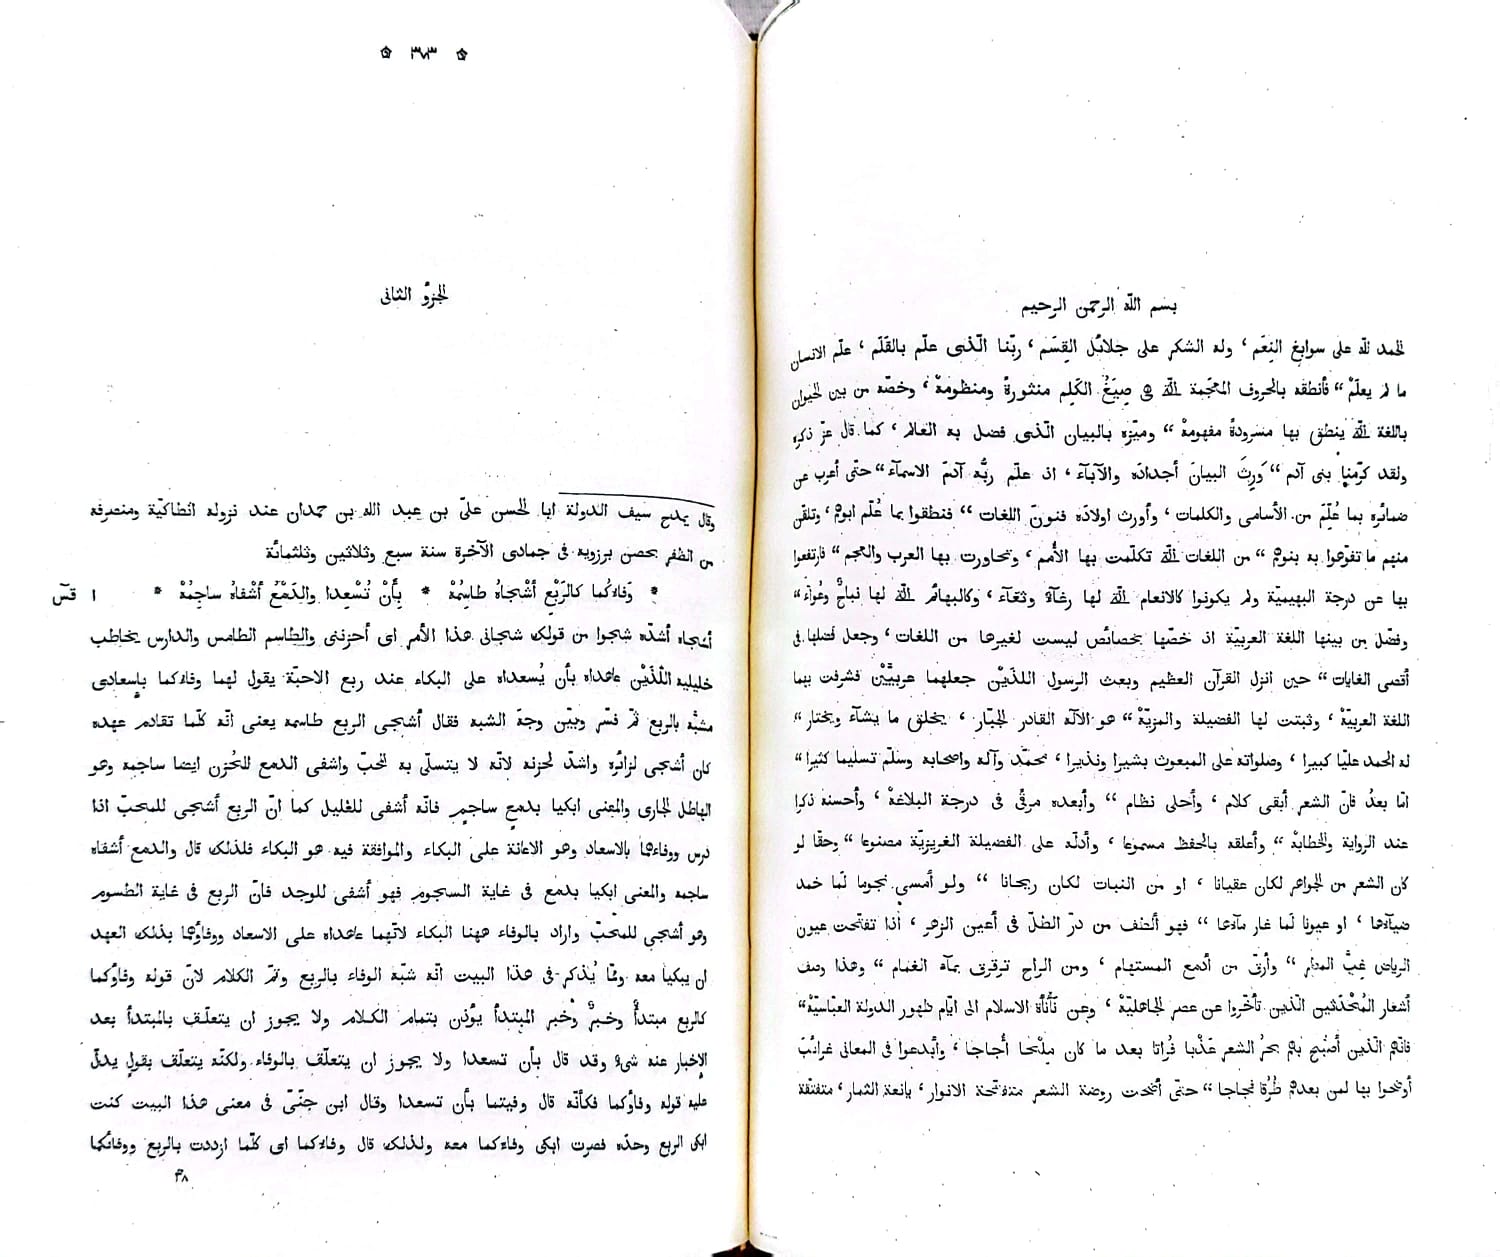 بسم اللّه الرحمن الرحيم
الحمد للّه على سوابغ النِعَم ، وله الشكر على جلائل القِسَم ، ربّنا الّذى علّم بالقَلَم ، علّم الانسان
ما لم يعلَمْ “ فأنطقه بالحروف المعجَمة الّتى هى صِيَغُ الكَلِم منثورةً ومنظومةْ ، وخصّه من بين الحيوان
باللغة الّتى ينطق بها مسرودةً مفهومةْ “ وميّزه بالبيان الّذى فضل به العالم ، كما قال عزّ ذكره
ولقد كرّمنا بنى آدم “ وَرِثَ البيانَ أجدادَه والآبآء ، اذ علّم ربُّه آدمَ الاسمآء “ حتّى أعرب عن
ضمائره بما عُلِّمَ من الأسامى والكلمات ، وأورث اولادَه فنونَ اللغات “ فنطقوا بما عُلّم ابوهم ، وتلقّن
منهم ما تفوّهوا به بنوهم “ من اللغات الّتى تكلّمت بها الأُمم ، وتحاورت بها العرب والعجم “ فارتفعوا
بها عن درجة البهيميّة ولم يكونوا كالانعام الّتى لها رغآءٌ وثغآء ، وكالبهائم الّتى لها نباحٌ وعُوآء “
وفضّل من بينها اللغة العربيّة اذ خصّها بخصائص ليست لغيرها من اللغات ، وجعل فضلها فى
أقصى الغايات “ حين انزل القرآن العظيم وبعث الرسول اللذَيْن جعلهما عربيَّيْن فشرفت بهما
اللغة العربيّةْ ، وثبتت لها الفضيلة والمزيّةْ “ هو الآلَه القادر الجبّار ، يخلق ما يشآء ويختار “
له الحمد عليّا كبيرا ، وصلواته على المبعوث بشيرا ونذيرا ، محمّد وآله واصحابه وسلّم تسليما كثيرا “
امّا بعدُ فانّ الشعر أبقى كلام ، وأحلى نظام “ وأبعده مرقًى فى درجة البلاغةْ ، وأحسنه ذكرا
عند الرواية والخطابةْ “ وأعلقه بالحفظ مسموعا ، وأدلّه على الفضيلة الغريزيّة مصنوعا “ وحقّا لو
كان الشعر من الجواهر لكان عقيانا ، او من النبات لكان ريحانا “ ولو أمسى نجوما لَما خمد
ضيآءها ، او عيونا لَما غار مآءها “ فهو ألطف من درّ الطَلّ فى أعين الزهر ، اذا تفتّحت عيون
الرياض غِبَّ المطر “ وأرقّ من أدمع المستهام ، ومن الراح ترقرق بمآء الغمام “ وهذا وصف
أشعار المُحْدَثين الّذين تأخّروا عن عصر الجاهليّةْ ، وعن نأنأة الاسلام الى ايّام ظهور الدولة العبّاسيّةْ “
فانّهم الّذين أصبح بهم بحرُ الشعر عَذْبا فُراتا بعد ما كان مِلْحا أُجاجا ، وأبدعوا فى المعانى غرائبَ
أوضحوا بها لمن بعدهم طُرُقا فجاجا “ حتّى أضحت روضة الشعر متفتّحة الانوار ، يانعة الثمار ، متفتّقة
۞ ٣٧٣ ۞
الجزؤ الثانى
وقال يمدح سيف الدولة ابا الحسن علىّ بن عبد اللّه بن حمدان عند نزوله انطاكيّة ومنصرفه
من الظفر بحصن برزويه فى جمادى الآخرة سنة سبع وثلاثين وثلثمائة
* وَفاءُكُما كالرَبْعِ أشْجاهُ طاسِمُهْ * بِأَنْ تُسْعِدا والدَمْعُ أشْفاهُ ساجِمُهْ * ١ قسآ
أشجاه أشدّه شجوا من قولك شجانى هذا الأمر اى أحزننى والطاسم الطامس والدارس يخاطب
خليليه اللّذَيْن عاهداه بأن يُسعداه على البكاء عند ربع الاحبّة يقول لهما وفاءكما باسعادى
مشبّه بالربع ثمّ فسّر وبيّن وجهَ الشبه فقال أشجى الربع طاسمه يعنى انّه كلّما تقادم عهده
كان أشجى لزائره واشدّ لحزنه لانّه لا يتسلّى به المحبّ واشفى الدمع للحُزن ايضا ساجمه وهو
الهاطل الجارى والمعنى ابكيا بدمعٍ ساجمٍ فانّه أشفى للغليل كما انّ الربع أشجى للمحبّ اذا
درس ووفاءهما بالاسعاد وهو الاعانة على البكاء والموافقة فيه هو البكاء فلذلك قال والدمع أشفاه
ساجمه والمعنى ابكيا بدمع فى غاية السجوم فهو أشفى للوجد فانّ الربع فى غاية الطسوم
وهو أشجى للمحبّ واراد بالوفاء ههنا البكاء لانّهما عاهداه على الاسعاد ووفاؤُهما بذلك العهد
ان يبكيا معه وممّا يُذكر فى هذا البيت انّه شبّه الوفاء بالربع وتمّ الكلام لانّ قوله وفاؤكما
كالربع مبتدأٌ وخبرٌ وخبر المبتدأ يوُذن بتمام الكلام ولا يجوز ان يتعلّف بالمبتدأ بعد
الإخبار عنه شىء وقد قال بأن تسعدا ولا يجوز ان يتعلّف بالوفاء ولكنّه يتعلّف بقول يدلّ
عليه قوله وفاؤكما فكأنّه قال وفيتما بأن تسعدا وقال ابن جنّىّ فى معنى هذا البيت كنت
ابكى الربع وحدَه فصرت ابكى وفاءكما معه ولذلك قال وفاءكما اى كلّما ازددت بالربع ووفائكما
٤٨